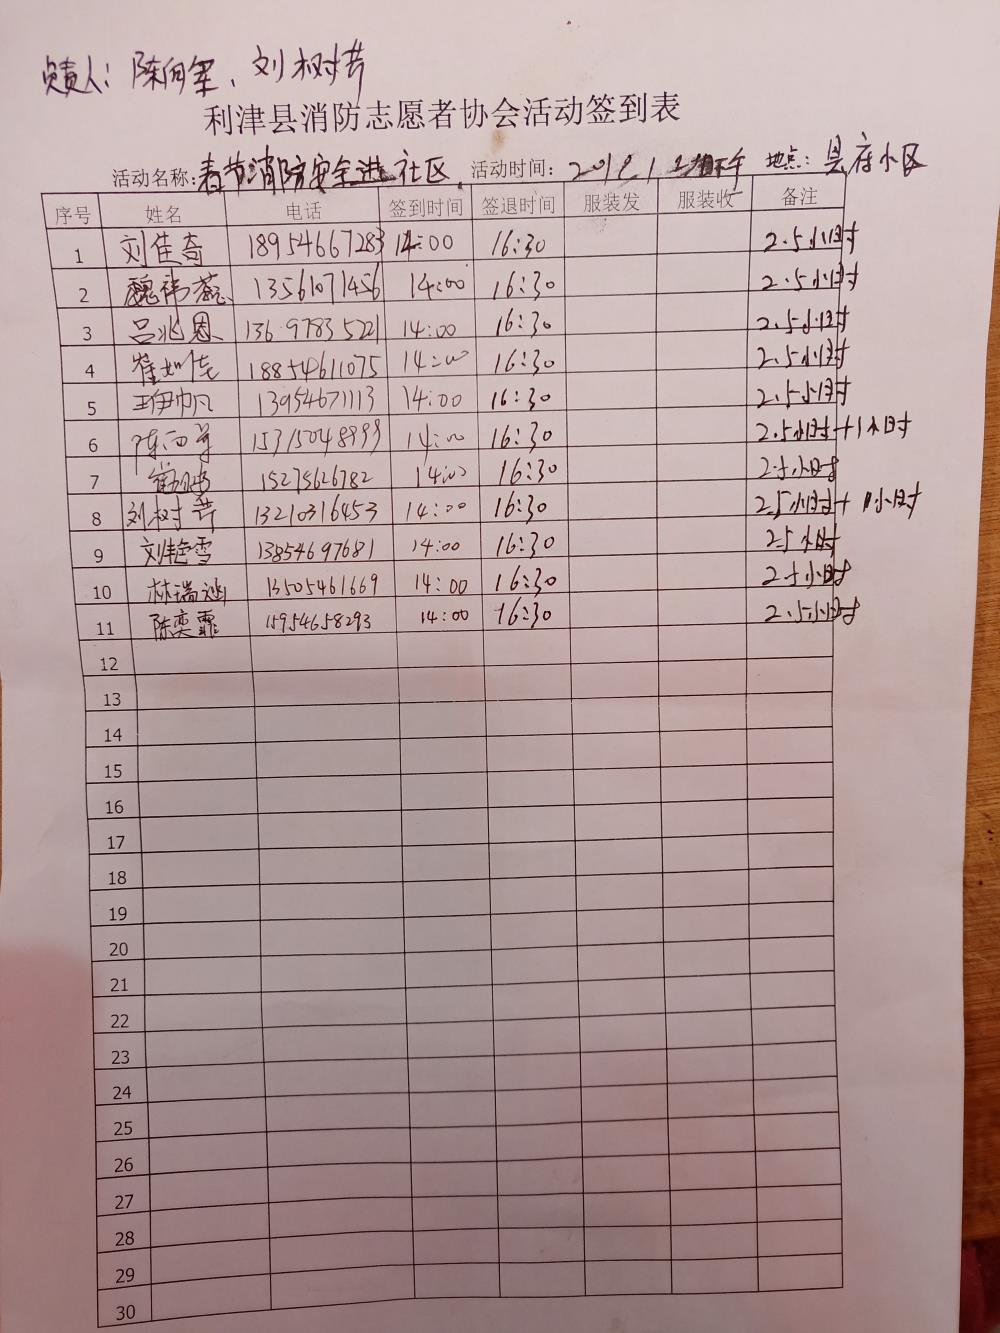 负责人：陈向军、刘树芹
利津县消防志愿者协会活动签到表
活动名称：春节消防安全进社区 活动时间：2019.1 下午 地点：县府小区
序号 姓名 电话 签到时间 签退时间 服装发 服装收 备注
1 刘佳奇 18954667283 14:00 16:30 2.5小时
2 魏祎蕊 13561071456 14:00 16:30 2.5小时
3 吕兆恩 13697835221 14:00 16:30 2.5小时
4 崔如佳 18854611075 14:00 16:30 2.5小时
5 王伊帆 13954671113 14:00 16:30 2.5小时
6 陈向军 15315048999 14:00 16:30 2.5小时+1小时
7 15275626782 14:00 16:30 2.5小时
8 刘树芹 13210316453 14:00 16:30 2.5小时+1小时
9 刘艳雪 13854697681 14:00 16:30 2.5小时
10 林瑞涵 13505461669 14:00 16:30 2.5小时
11 陈奕霏 15954658293 14:00 16:30 2.5小时
12
13
14
15
16
17
18
19
20
21
22
23
24
25
26
27
28
29
30